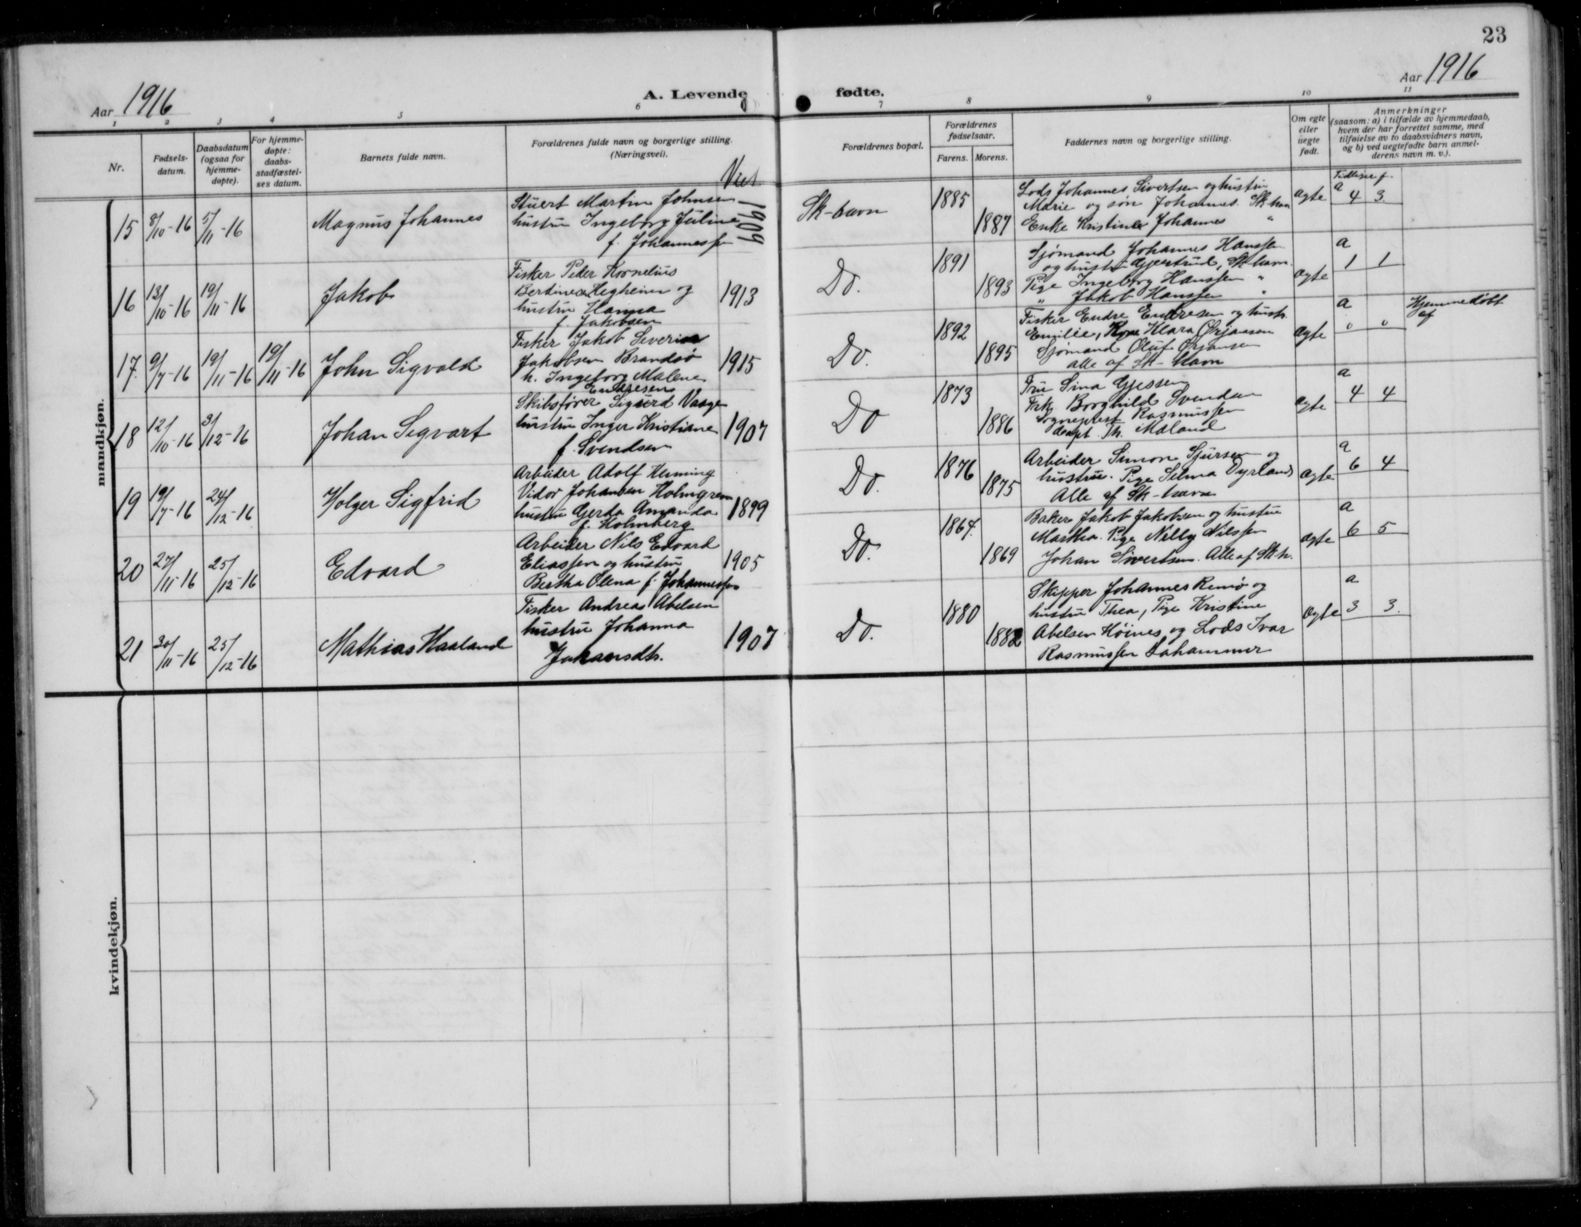 23
Aar 1916
A. Levende fødte.
Aar 1916
1 2 3 4 5 6 7 8 9 10 11
Nr.
Fødsels-
datum.
Daabsdatum
(ogsaa for
hjemme-
døpte).
For hjemme-
døpte:
daabs-
stadfæstel-
ses datum.
Barnets fulde navn.
Forældrenes fulde navn og borgerlige stilling.
(Næringsvei).
Viet
Forældrenes bopæl.
Forældrenes
fødselsaar.
Farens. Morens.
Faddernes navn og borgerlige stilling.
Om egte
eller
uegte
født.
Anmerkninger
(saasom: a) i tilfælde av hjemmedaab,
hvem der har forrettet samme, med
tilføielse av to daabsvidners navn,
og b) ved uegtefødte barn anmel-
derens navn m. v.).
mandkjøn.
15 8/10-16 5/11-16 Magnus Johannes
Stuert Martin Johnsen
hustru Ingeborg Juline
f. Johannesse
1909 Sk-havn 1885 1887
Lods Johannes Sivertsen og hustru
Marie og søn Johannes Sk-havn
Enke Kristine Johannes "
ægte a 4 3
16 13/10-16 19/11-16 Jakob
Fisker Peder Kornelius
Berdines Hegheim og
hustru Hanna
f. Jakobsen
1913 Do. 1891 1893
Sjømand Johannes Hanssen
og hustru Gjertrud, Sk-havn
Pige Ingeborg Hanssen "
" Jakob Hanssen "
ægte a 1 1
17. 9/7-16 19/11-16 19/11-16 John Sigvald
Fisker Jakob Severin
Jakobsen Brandsø
h. Ingeborg Malene
Endresen
1915 Do. 1892 1895
Fisker Endre Endresen og hustr.
Emilie, Klara Ørjansen
Sjømand Oluf Ørjansen
alle af Sk-havn
ægte a 0 0 Hjemmedøbt
af
18 12/10-16 3/12-16 Johan Sigvart
Skibsfører Sigurd Vaage
hustru Inger Kristiane
f. Svendsen
1907 Do 1873 1886
Fru Sina Gjessen
Frk Borghild Svendsen
Sogneprest Rasmussen
Th. Maland
ægte a 4 4
19 19/7-16 24/12-16 Holger Sigfrid
Arbeider Adolf Heming
Vidor Johansen Holmgren
hustru Gerda Amanda
f. Holmberg
1899 Do. 1876 1875
Arbeider Simon Sjursen og
hustru. Pige Selma Dyrland
Alle af Sk-havn
ægte a 6 4
20 27/11-16 25/12-16 Edvard
Arbeider Nils Edvard
Eliassen og hustru
Bertha Olena f. Johannessen
1905 Do. 1864. 1869
Baker Jakob Jakobsen og hustru
Martha. Pige Nelly Nilssen
Johan Sivertsen. Alle af Sk-h.
ægte a 6 5
21 30/11-16 25/12-16 Mathias Haaland
Fisker Andreas Abelsen
hustru Johanna
Johansdt.
1907 Do. 1880 1882
Skipper Johannes Remø og
hustru Thea, Pige Kristine
Abelsen Høines og Lods Ivar
Rasmussen Lahammer
ægte a 3 3.
kvindekjøn.